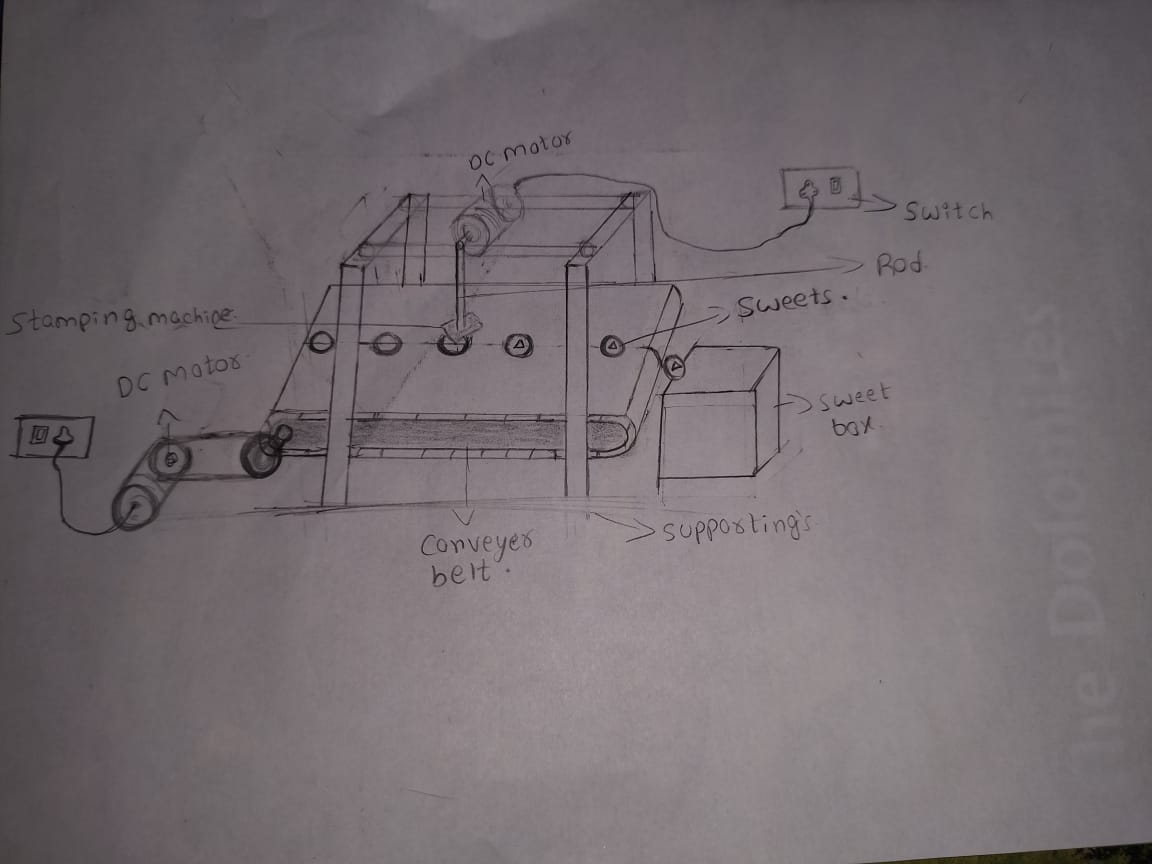 DC motor
Switch
Rod.
Stamping machine
Sweets.
DC motor
sweet
box.
Conveyer
belt.
supporting's
The Dolomites